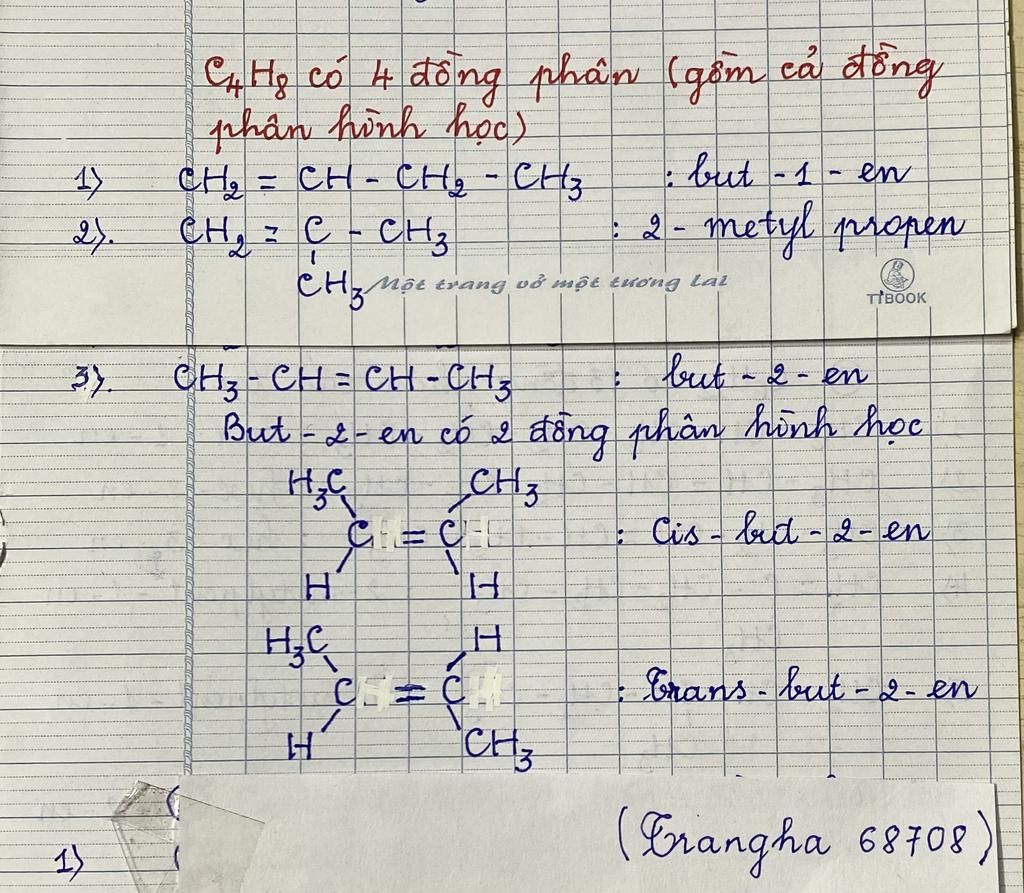 C4H8 có 4 đồng phân (gồm cả đồng
phân hình học)
1) CH2 = CH - CH2 - CH3 : but - 1 - en
2). CH2 = C - CH3 : 2 - metyl propen
CH3
Một trang vở một tương lai
TTBOOK
3). CH3 - CH = CH - CH3 : but - 2 - en
But - 2 - en có 2 đồng phân hình học
H3C CH3
C = C : Cis - but - 2 - en
H H
H3C H
C = C : Trans - but - 2 - en
H CH3
(Trangha 68708)
1)